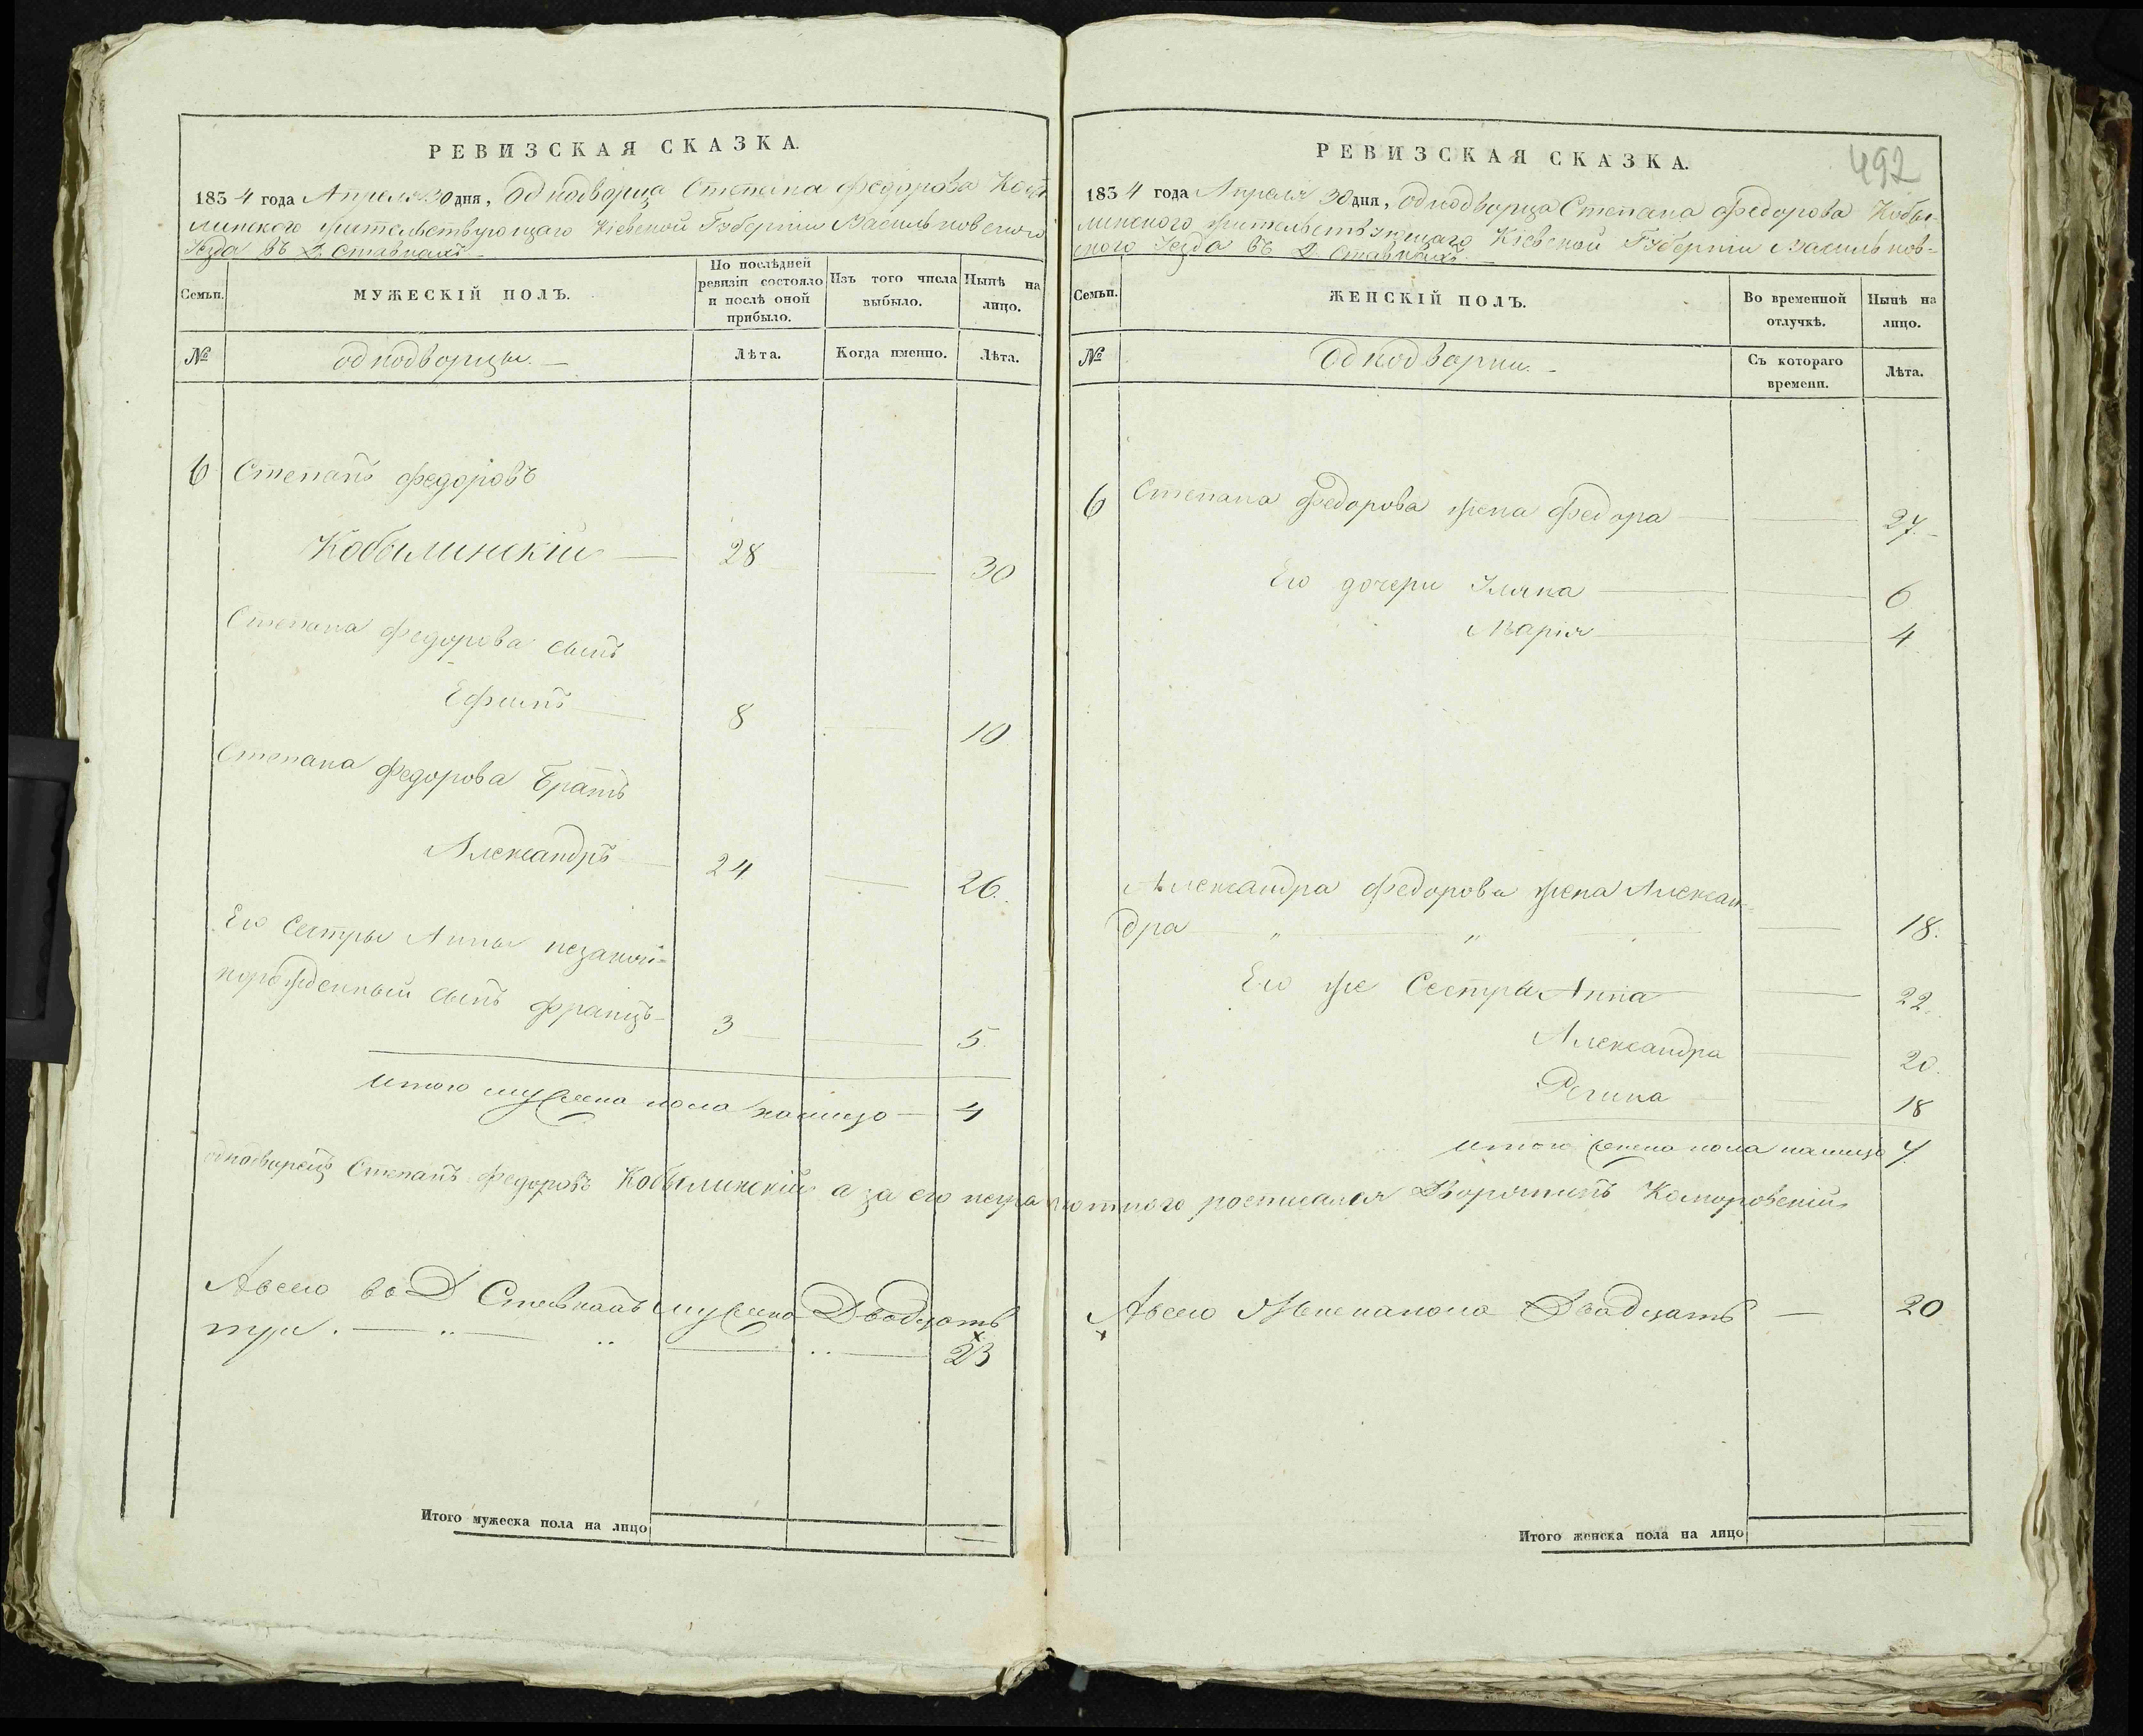 РЕВИЗСКАЯ СКАЗКА.
1834 года Апреля 30 дня, Однодворца Степана Федорова Кобы
линского жительствующаго Кіевской Губерніи Васильковского
Уезда въ Д. Ставкахъ
Семьи.
МУЖЕСКІЙ ПОЛЪ.
По послѣдней ревизіи состояло и послѣ оной прибыло.
Изъ того числа выбыло.
Нынѣ на лицо.
№
однодворцы.—
Лѣта.
Когда именно.
Лѣта.
6 Степанъ Федоровъ
Кобылинскій — 28 — 30
Степана Федорова сынъ
Ефимъ 8 — 10
Степана Федорова Братъ
Александръ 24 — 26.
Его Сестры Анны незакон-
норожденный сынъ Францъ— 3 — 5.
итого мужеска пола налицо — 4
однодворецъ Степанъ Федоровъ Кобылинскій а за его неграмотного росписался Дворянинъ Коморовскій
Авсего въ Д Ставкахъ мужеска Двадцать
три. — 23
Итого мужеска пола на лицо
РЕВИЗСКАЯ СКАЗКА.
492
1834 года Апреля 30 дня, однодворца Степана Федорова Кобы-
линского жительствующаго Кіевской Губерніи Васильков-
ского Уезда въ Д. Ставкахъ.—
Семьи.
ЖЕНСКІЙ ПОЛЪ.
Во временной отлучкѣ.
Нынѣ на лицо.
№
Однодворки.—
Съ котораго времени.
Лѣта.
6 Степана Федорова жена Федора — 27.—
Его дочери Уляна — 6
Марія — 4
Александра Федорова жена Алексан-
дра " " — 18.
Его же Сестры Анна — 22.
Александра — 20.
Регина — 18
итого женска пола налицо 7.
Авсего Женска пола Двадцать — 20
Итого женска пола на лицо